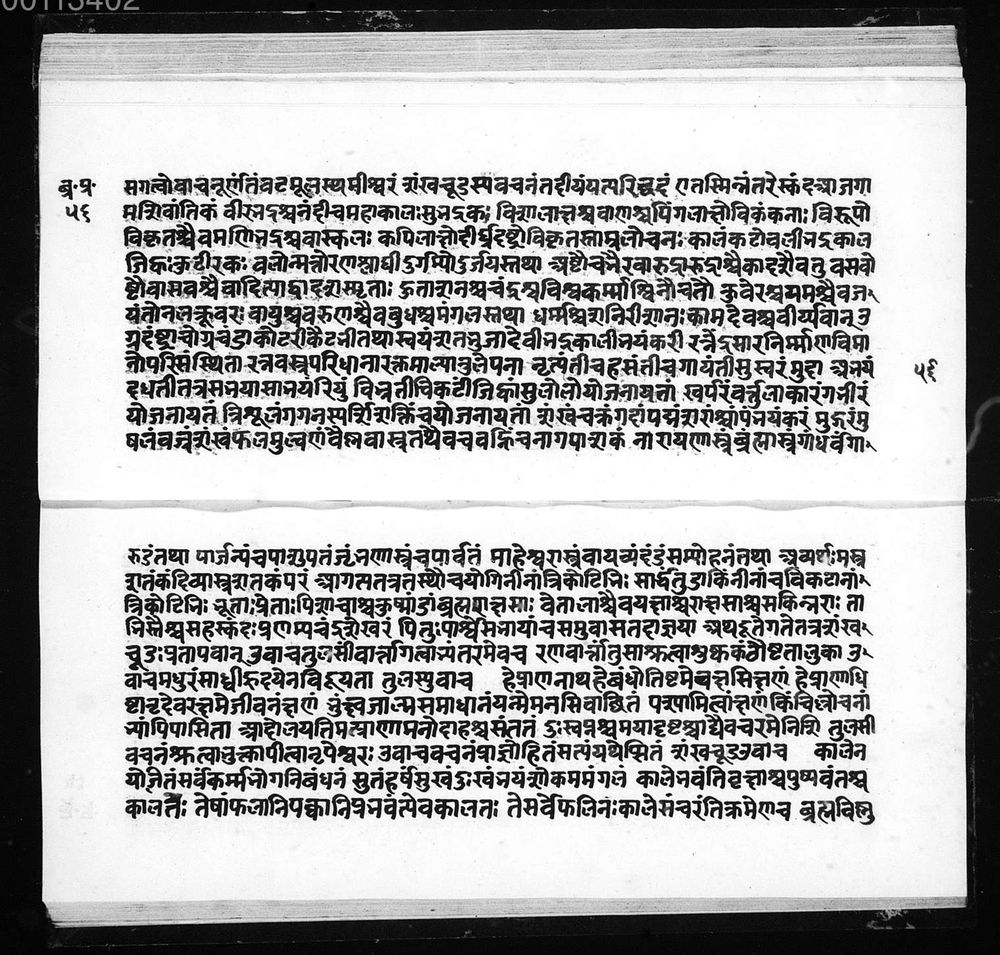 00113402
ब्र॰ प्र॰
५६
स गत्वोवाच तूर्णं तं वटमूलस्थमीश्वरं शंखचूडस्य वचनं तदीयं यत्परिच्छदं एतस्मिन्नंतरे स्कंद आजगा
म शिवांतिकं वीरभद्रश्च नंदी च महाकालः सुभद्रकः विशालाक्षश्च वाणश्च पिंगलाक्षो विकंकनाः विरूपो
विकृतश्चैव मणिभद्रश्च वास्कलः कपिलाक्षो दीर्घदंष्ट्रो विकृतस्ताम्रलोचनः कालंकटो वलीभद्रकाल
जिह्वः कुटीरकः वलोन्मत्तो रणश्लाघी दुर्गम्यो दुर्जयस्तथा अष्टौ च भैरवा रुद्रा रुद्राश्चैकादशैव तु वसवो
ष्टौ वासवश्चैवादित्याद्वादश स्मृताः हुताशनश्च चंद्रश्च विश्वकर्माश्विनौ च तौ कुवेरश्च यमश्चैव ज
यंतो नलकूवरः वायुश्च वरुणश्चैव बुधश्च मंगलस्तथा धर्मश्च शनिरीशानः कामदेवश्च वीर्यवान् उ
ग्रदंष्ट्रा चोग्रचंडा कोटरी कैटभी तथा स्वयं शतभुजा देवी भद्रकाली भयंकरी रत्नेंद्रसारनिर्माणविमा
नोपरिसंस्थिता रक्तवस्त्रपरिधाना रक्तमाल्यानुलेपना नृत्यंती च हसंती च गायंती सुस्वरं मुदा अभयं
५६
दधती तत्र सभया साभयं रिपुं विभ्रती विकटां जिह्वां सुलोलां योजनायतां खर्परं वर्तुलाकारं गंभीरं
योजनायतं त्रिशूलं गगनस्पर्शि शक्तिं च योजनायतां शंखं चक्रं गदां पद्मं शरांश्चापं भयंकरं मुद्गरं मु
षलं वज्रं शंखं फलमुल्वणं वैष्णवास्त्रं तथैव च वह्निं च नागपाशकं नारायणास्त्रं ब्रह्मास्त्रं गांधर्वं गा
रुडं तथा पार्जन्यं च पाशुपतं जृंभणास्त्रं च पार्वतं माहेश्वरास्त्रं वायव्यं दंडं संमोहनं तथा अव्यर्थमस्त्र
शतकं दिव्यास्त्रशतकं परं आगत्य तत्र तस्थौ च योगिनीनां त्रिकोटिभिः सार्द्धं तु डाकिनीनां च विकटानां
त्रिकोटिभिः भूताः प्रेताः पिशाचाश्च कुष्मांडा ब्रह्मराक्षसाः वेतालाश्चैव यक्षाश्च राक्षसाश्च स किन्नराः ता
भिस्तैश्च सह स्कंदः प्रणम्य चंद्रशेखरं पितुः पार्श्वे सभायां च समुवास तदाज्ञया अथ दूते गते तत्र शंख
चूडः प्रतापवान् उवाच तुलसीं वार्त्तां गत्वाभ्यंतरमेव च रणवार्त्तां तु सा श्रुत्वा शुष्ककंठौष्टतालुका उ
वाच मधुरं साध्वी हृदयेन विदूयता तुलस्युवाच हे प्राणनाथ हे बंधो तिष्ट मे वक्षसि क्षणं हे प्राणाधि
ष्टातृदेव रक्ष मे जीवनं क्षणं भुंक्ष्व जन्मसमाधानं यन्मे मनसि वांछितं पश्यामि त्वां क्षणं किंचिल्लोचना
भ्यां पिपासिता आंदोलयति मत्प्राणा मनो दाहश्च संततं दुःस्वप्नश्च मया दृष्टश्चाद्यैव चरमे निशि तुलसी
वचनं श्रुत्वा भुक्त्वा पीत्वा नृपेश्वरः उवाच वचनं प्राज्ञो हितं सत्यं यथेप्सितं शंखचूड उवाच कालेन
योजितं सर्वं कर्मभोगनिबंधनं सुतं हर्षं सुखं दुःखं भयं शोकममंगलं काले भवंति वृक्षाश्च पुष्पवंतश्च
कालतः तेषां फलानि पक्वानि प्रभवत्येव कालतः ते सर्वे फलिनः काले संचरंति क्रमेण च ब्रह्मविष्णु